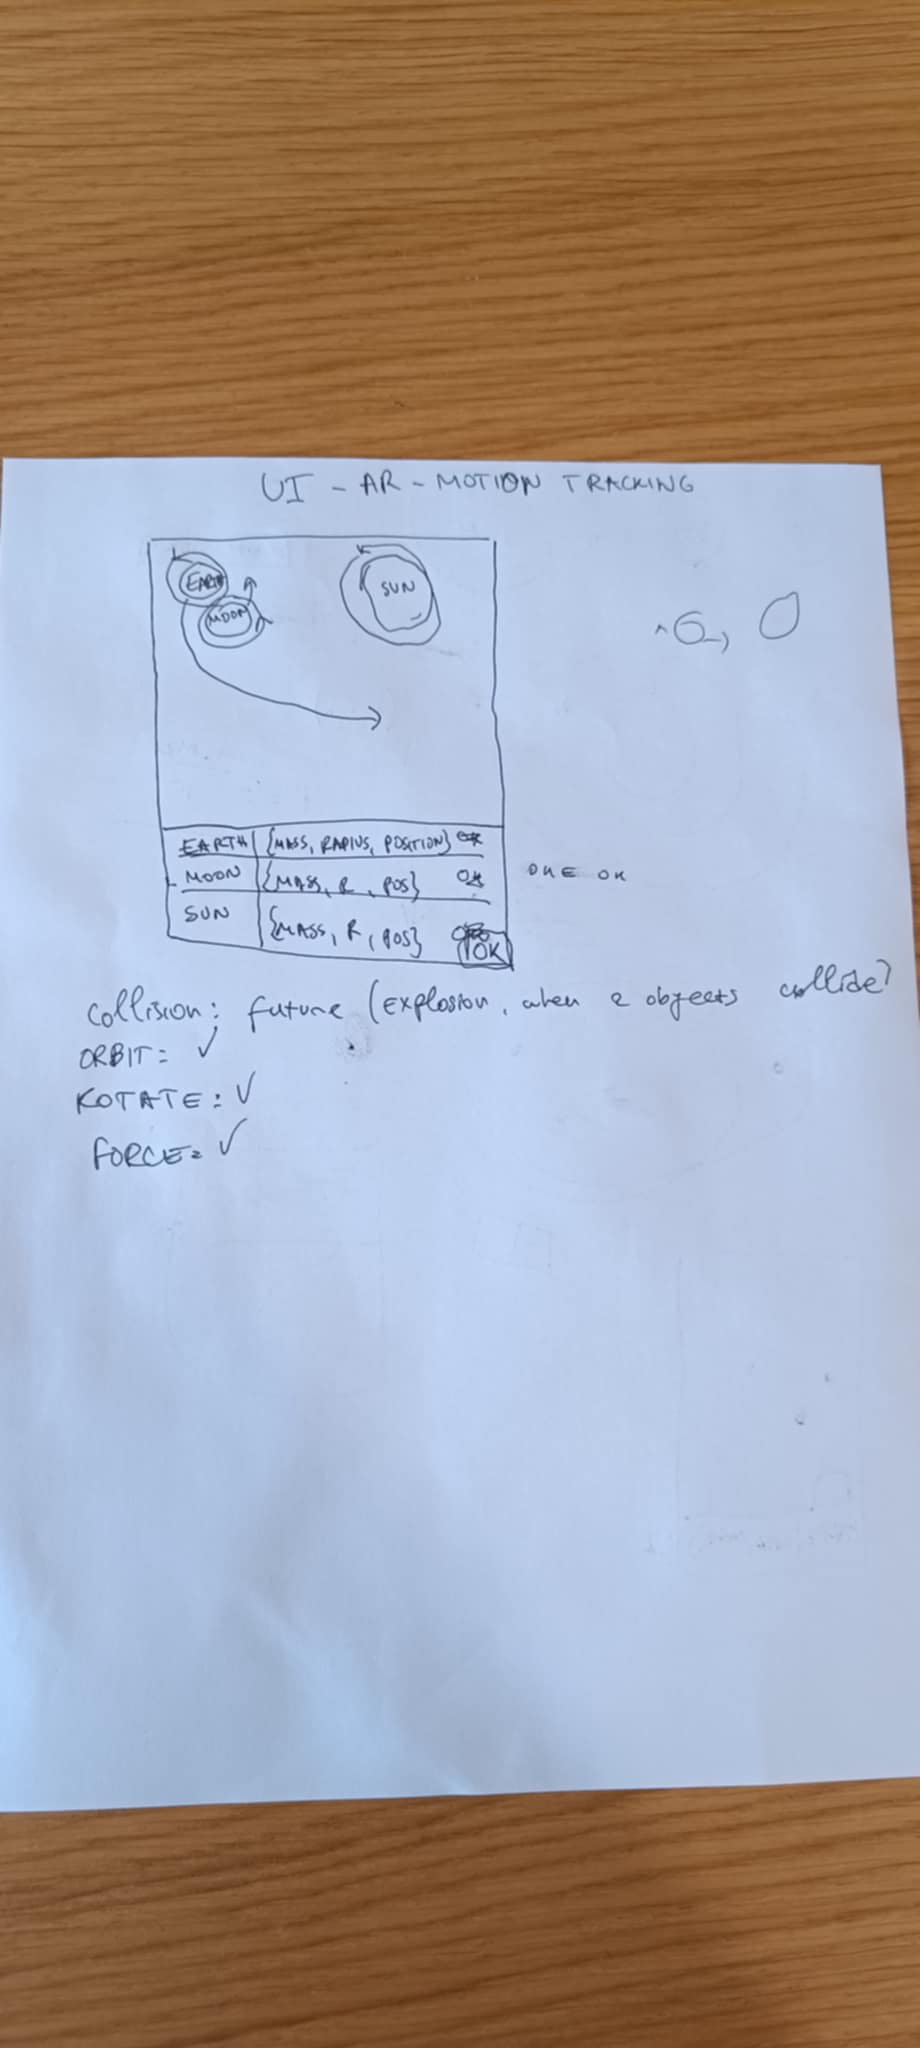 UI - AR - MOTION TRACKING
EARTH
SUN
MOON
EARTH {MASS, RADIUS, POSITION}
MOON {MASS, R, POS} OK
ONE OK
SUN {MASS, R, POS}
OK
Collision: future (Explosion, when 2 objects collide)
ORBIT: ✓
ROTATE: ✓
FORCE: ✓